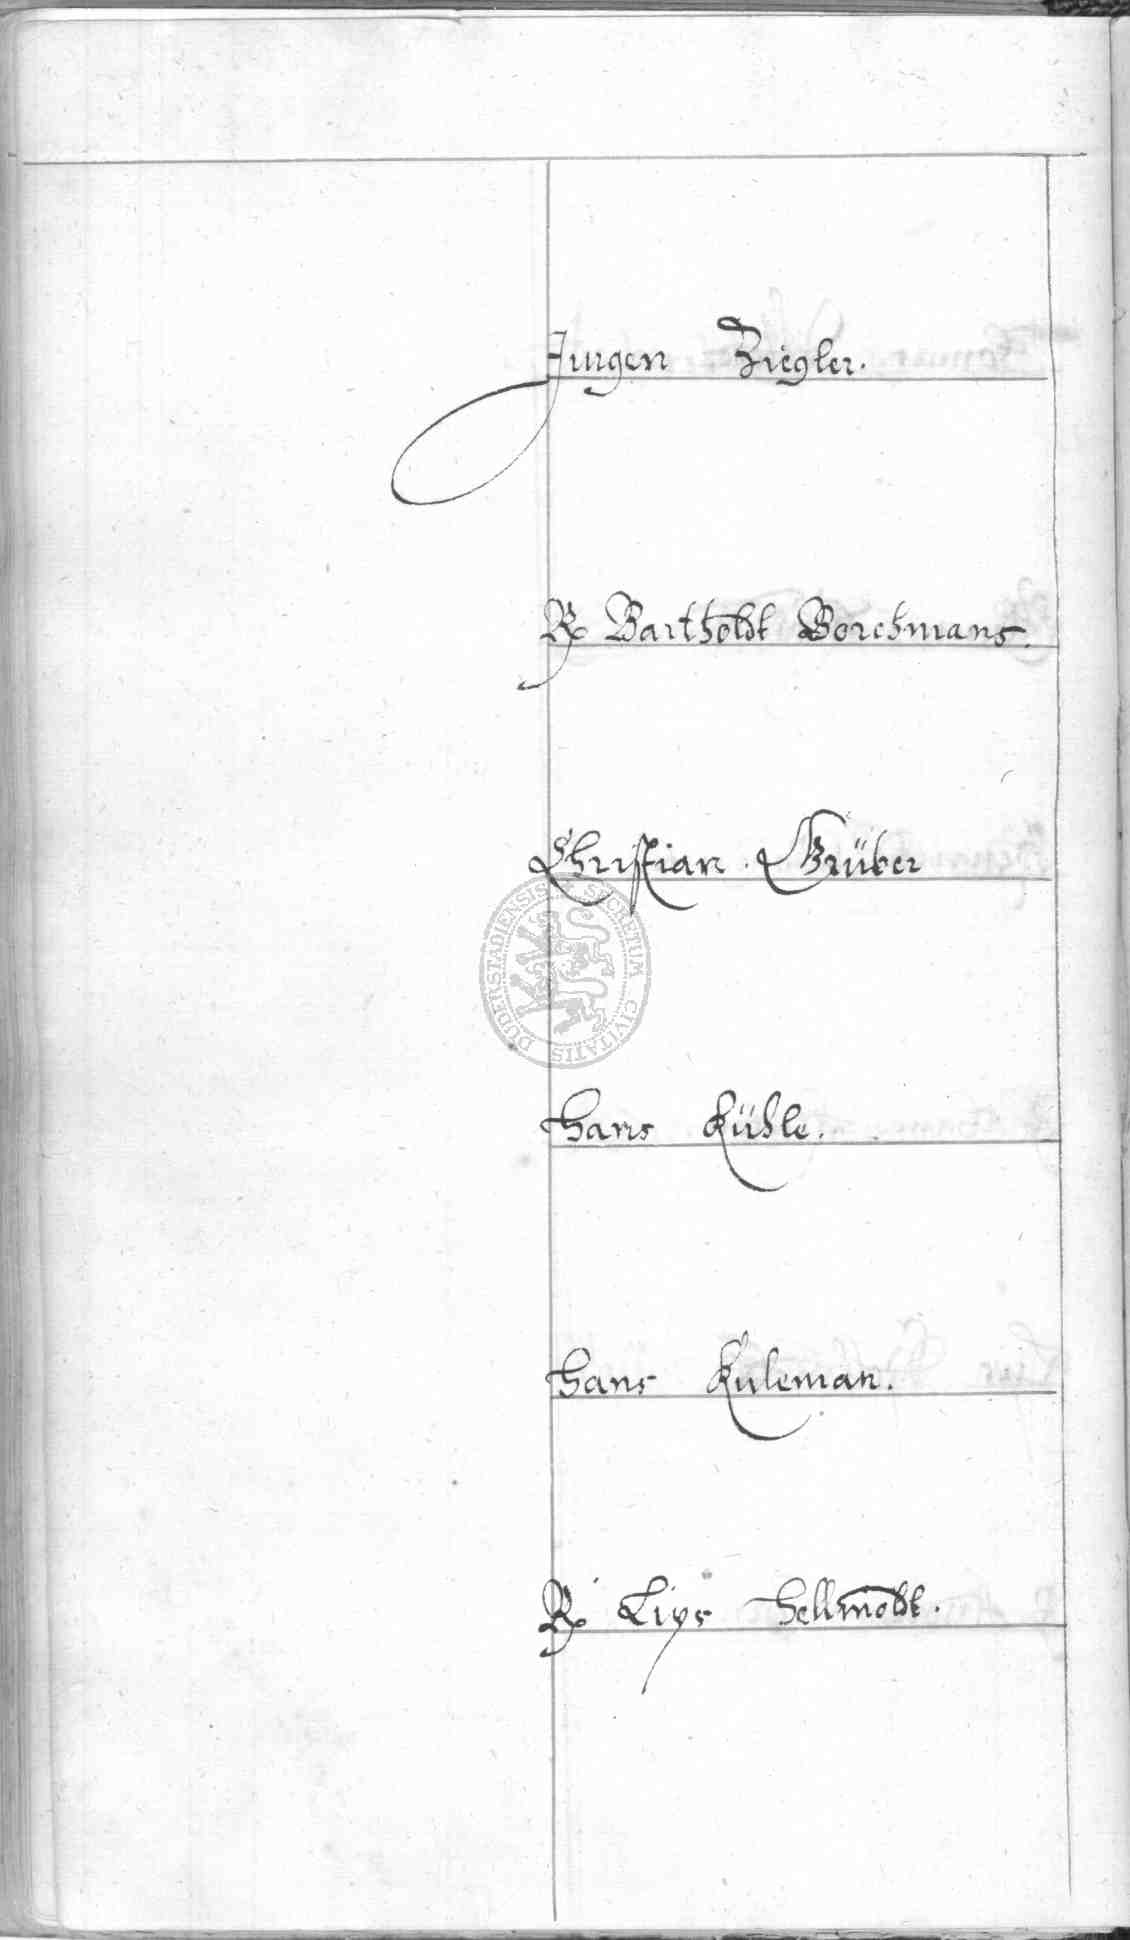 Jurgen Ziegler.
R Bartholdt Borchmans.
Christian . Grüber
SECRETUM CIVITATIS DUDERSTADIENSIS
Hans Kühle.
Hans Kuleman.
R Lips Hellmoldt.